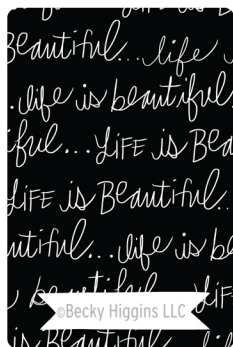 Beautiful... life
. life is beautiful
iful... LiFE is Bea
LiFE is BEautiful.
utiful... life is be
beautiful... LiF
©Becky Higgins LLC
is BEautiful